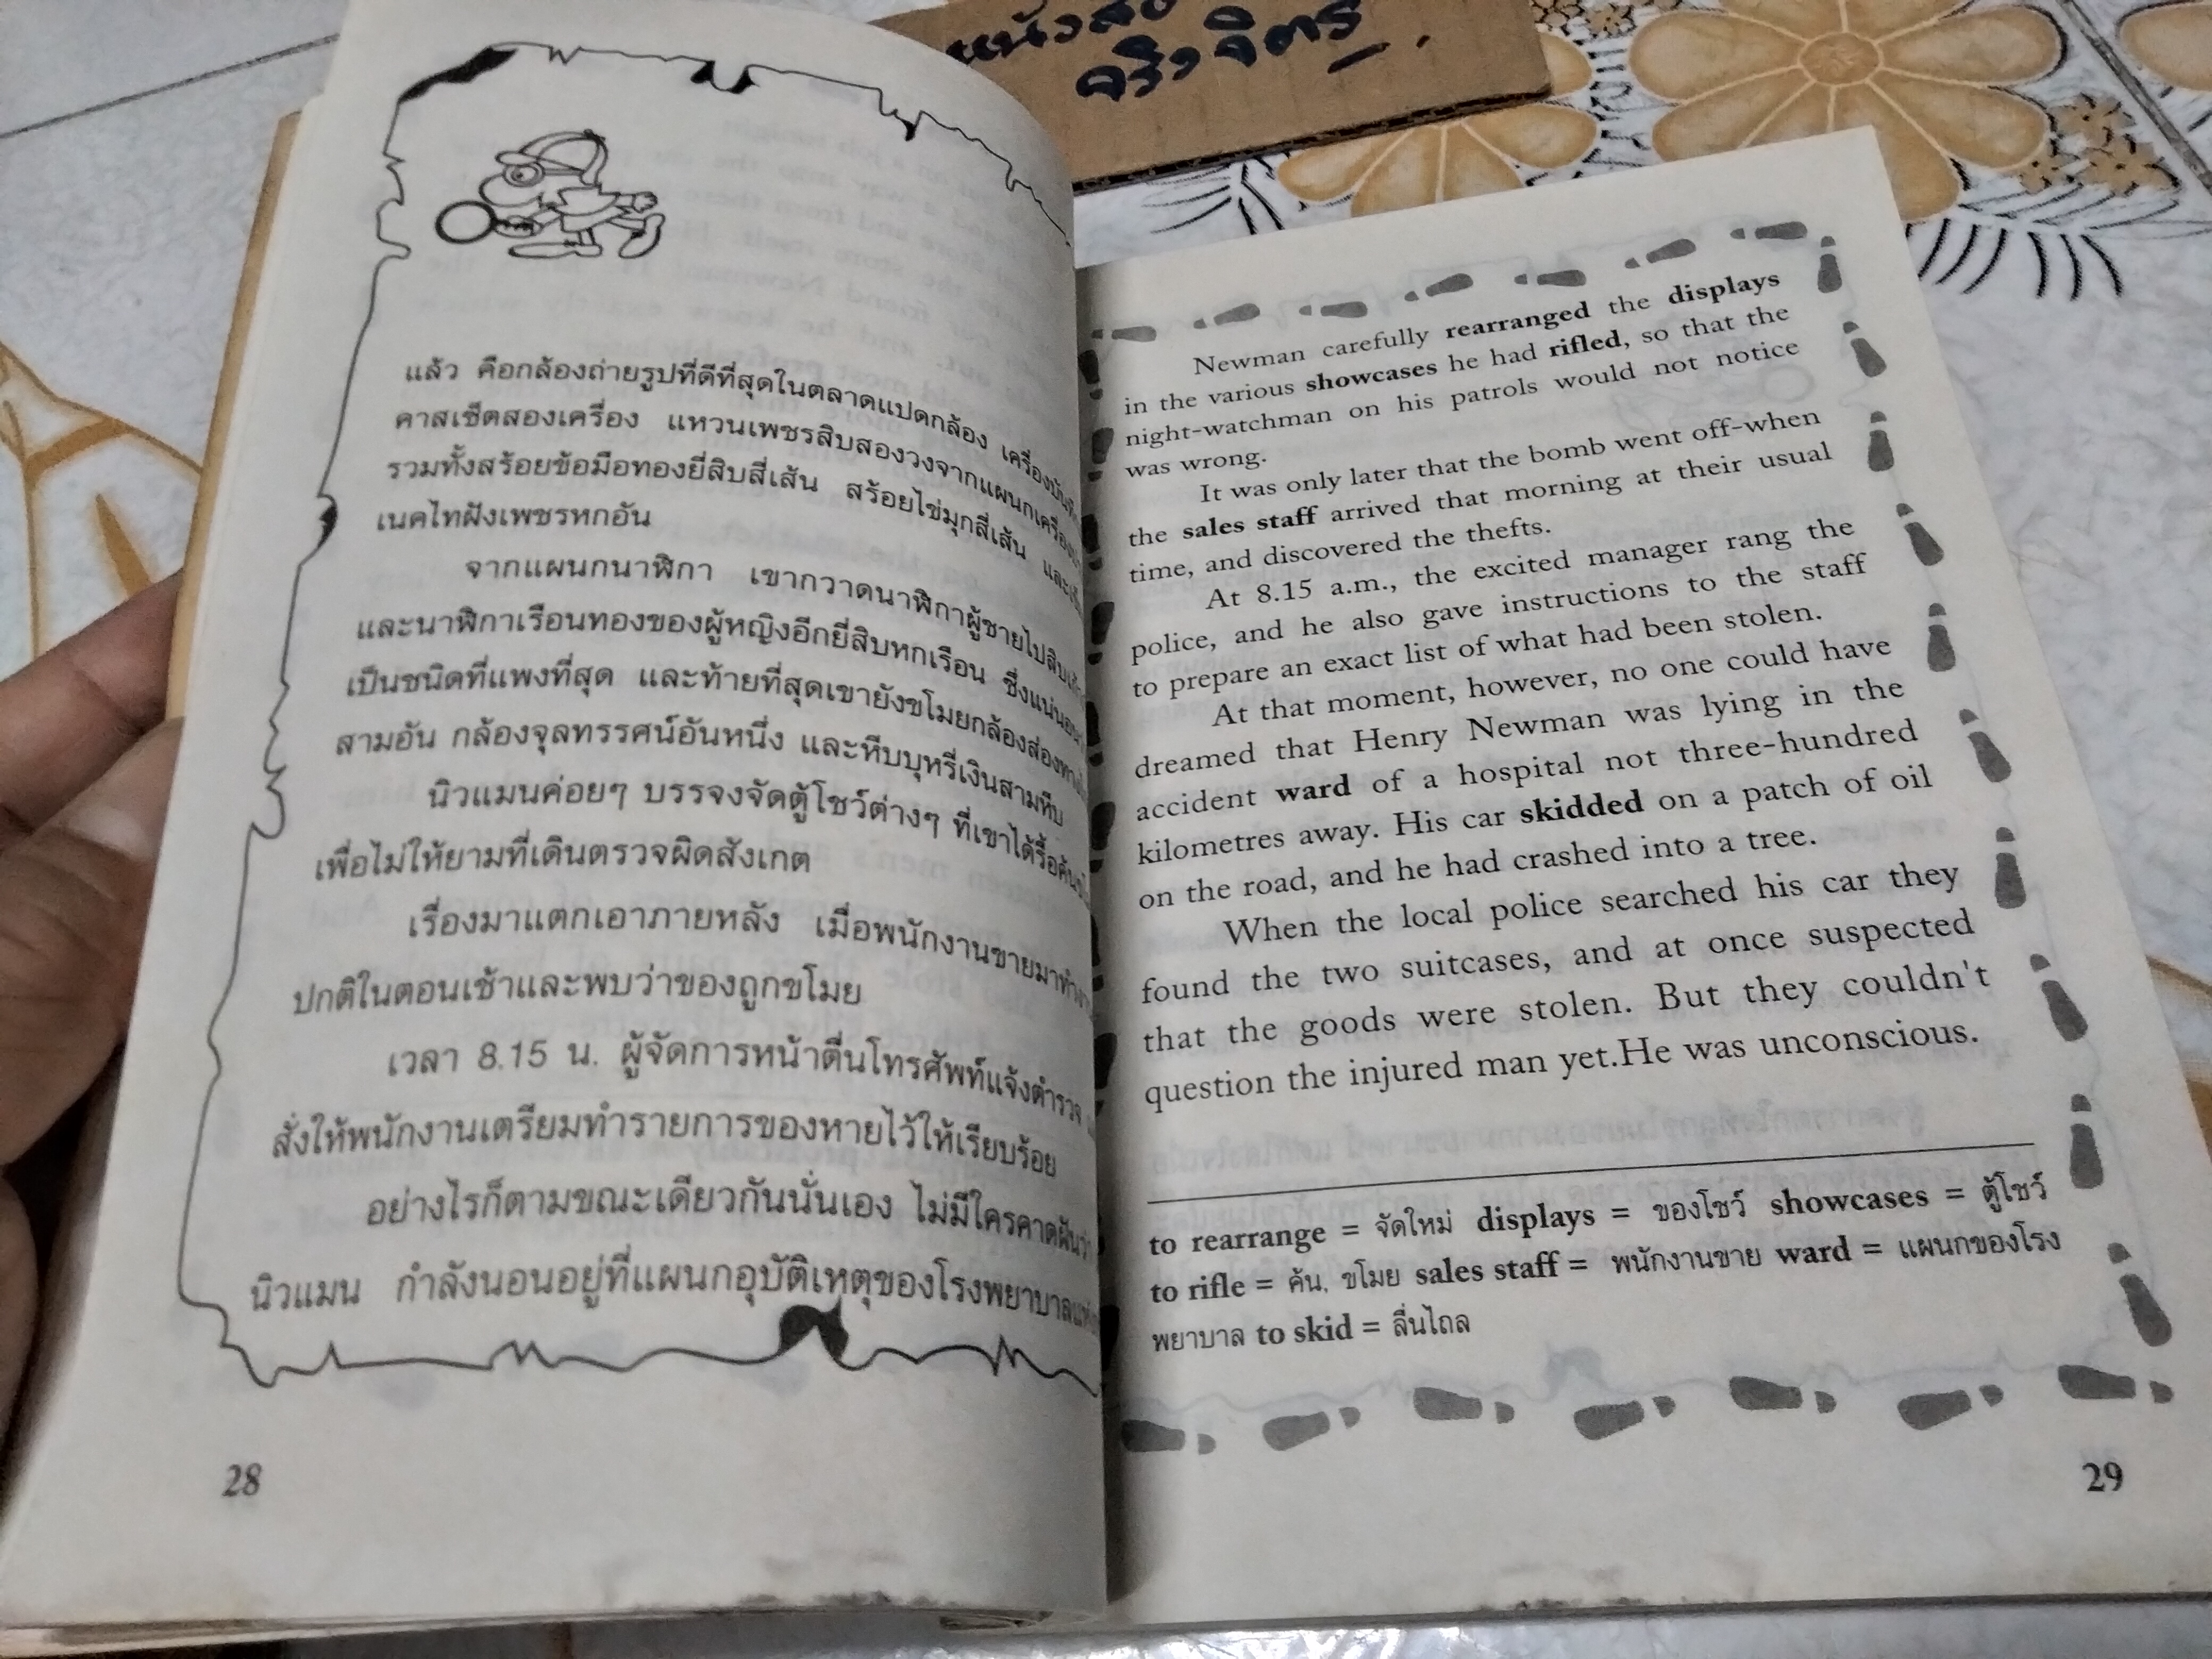 หนังสือ
แล้ว คือกล้องถ่ายรูปที่ดีที่สุดในตลาดแปดกล้อง
คาสเซ็ตสองเครื่อง แหวนเพชรสิบสองวงจากแผนก
รวมทั้งสร้อยข้อมือทองยี่สิบสี่เส้น สร้อยไข่มุกสี่เส้น และ
เนคไทฝังเพชรหกอัน
จากแผนกนาฬิกา เขากวาดนาฬิกาผู้ชายไป
และนาฬิกาเรือนทองของผู้หญิงอีกยี่สิบหกเรือน ซึ่งแน่นอน
เป็นชนิดที่แพงที่สุด และท้ายที่สุดเขายังขโมยกล้องส่อง
สามอัน กล้องจุลทรรศน์อันหนึ่ง และหีบบุหรี่เงินสามหีบ
นิวแมนค่อยๆ บรรจงจัดตู้โชว์ต่างๆ ที่เขาได้รื้อค้น
เพื่อไม่ให้ยามที่เดินตรวจผิดสังเกต
เรื่องมาแตกเอาภายหลัง เมื่อพนักงานขายมาทำงาน
ปกติในตอนเช้าและพบว่าของถูกขโมย
เวลา 8.15 น. ผู้จัดการหน้าตื่นโทรศัพท์แจ้งตำรวจ
สั่งให้พนักงานเตรียมทำรายการของหายไว้ให้เรียบร้อย
อย่างไรก็ตามขณะเดียวกันนั่นเอง ไม่มีใครคาดฝันว่า
นิวแมน กำลังนอนอยู่ที่แผนกอุบัติเหตุของโรงพยาบาล
28
Newman carefully rearranged the displays
in the various showcases he had rifled, so that the
night-watchman on his patrols would not notice
was wrong.
It was only later that the bomb went off-when
the sales staff arrived that morning at their usual
time, and discovered the thefts.
At 8.15 a.m., the excited manager rang the
police, and he also gave instructions to the staff
to prepare an exact list of what had been stolen.
At that moment, however, no one could have
dreamed that Henry Newman was lying in the
accident ward of a hospital not three-hundred
kilometres away. His car skidded on a patch of oil
on the road, and he had crashed into a tree.
When the local police searched his car they
found the two suitcases, and at once suspected
that the goods were stolen. But they couldn't
question the injured man yet.He was unconscious.
to rearrange = จัดใหม่ displays = ของโชว์ showcases = ตู้โชว์
to rifle = ค้น, ขโมย sales staff = พนักงานขาย ward = แผนกของโรง
พยาบาล to skid = ลื่นไถล
29